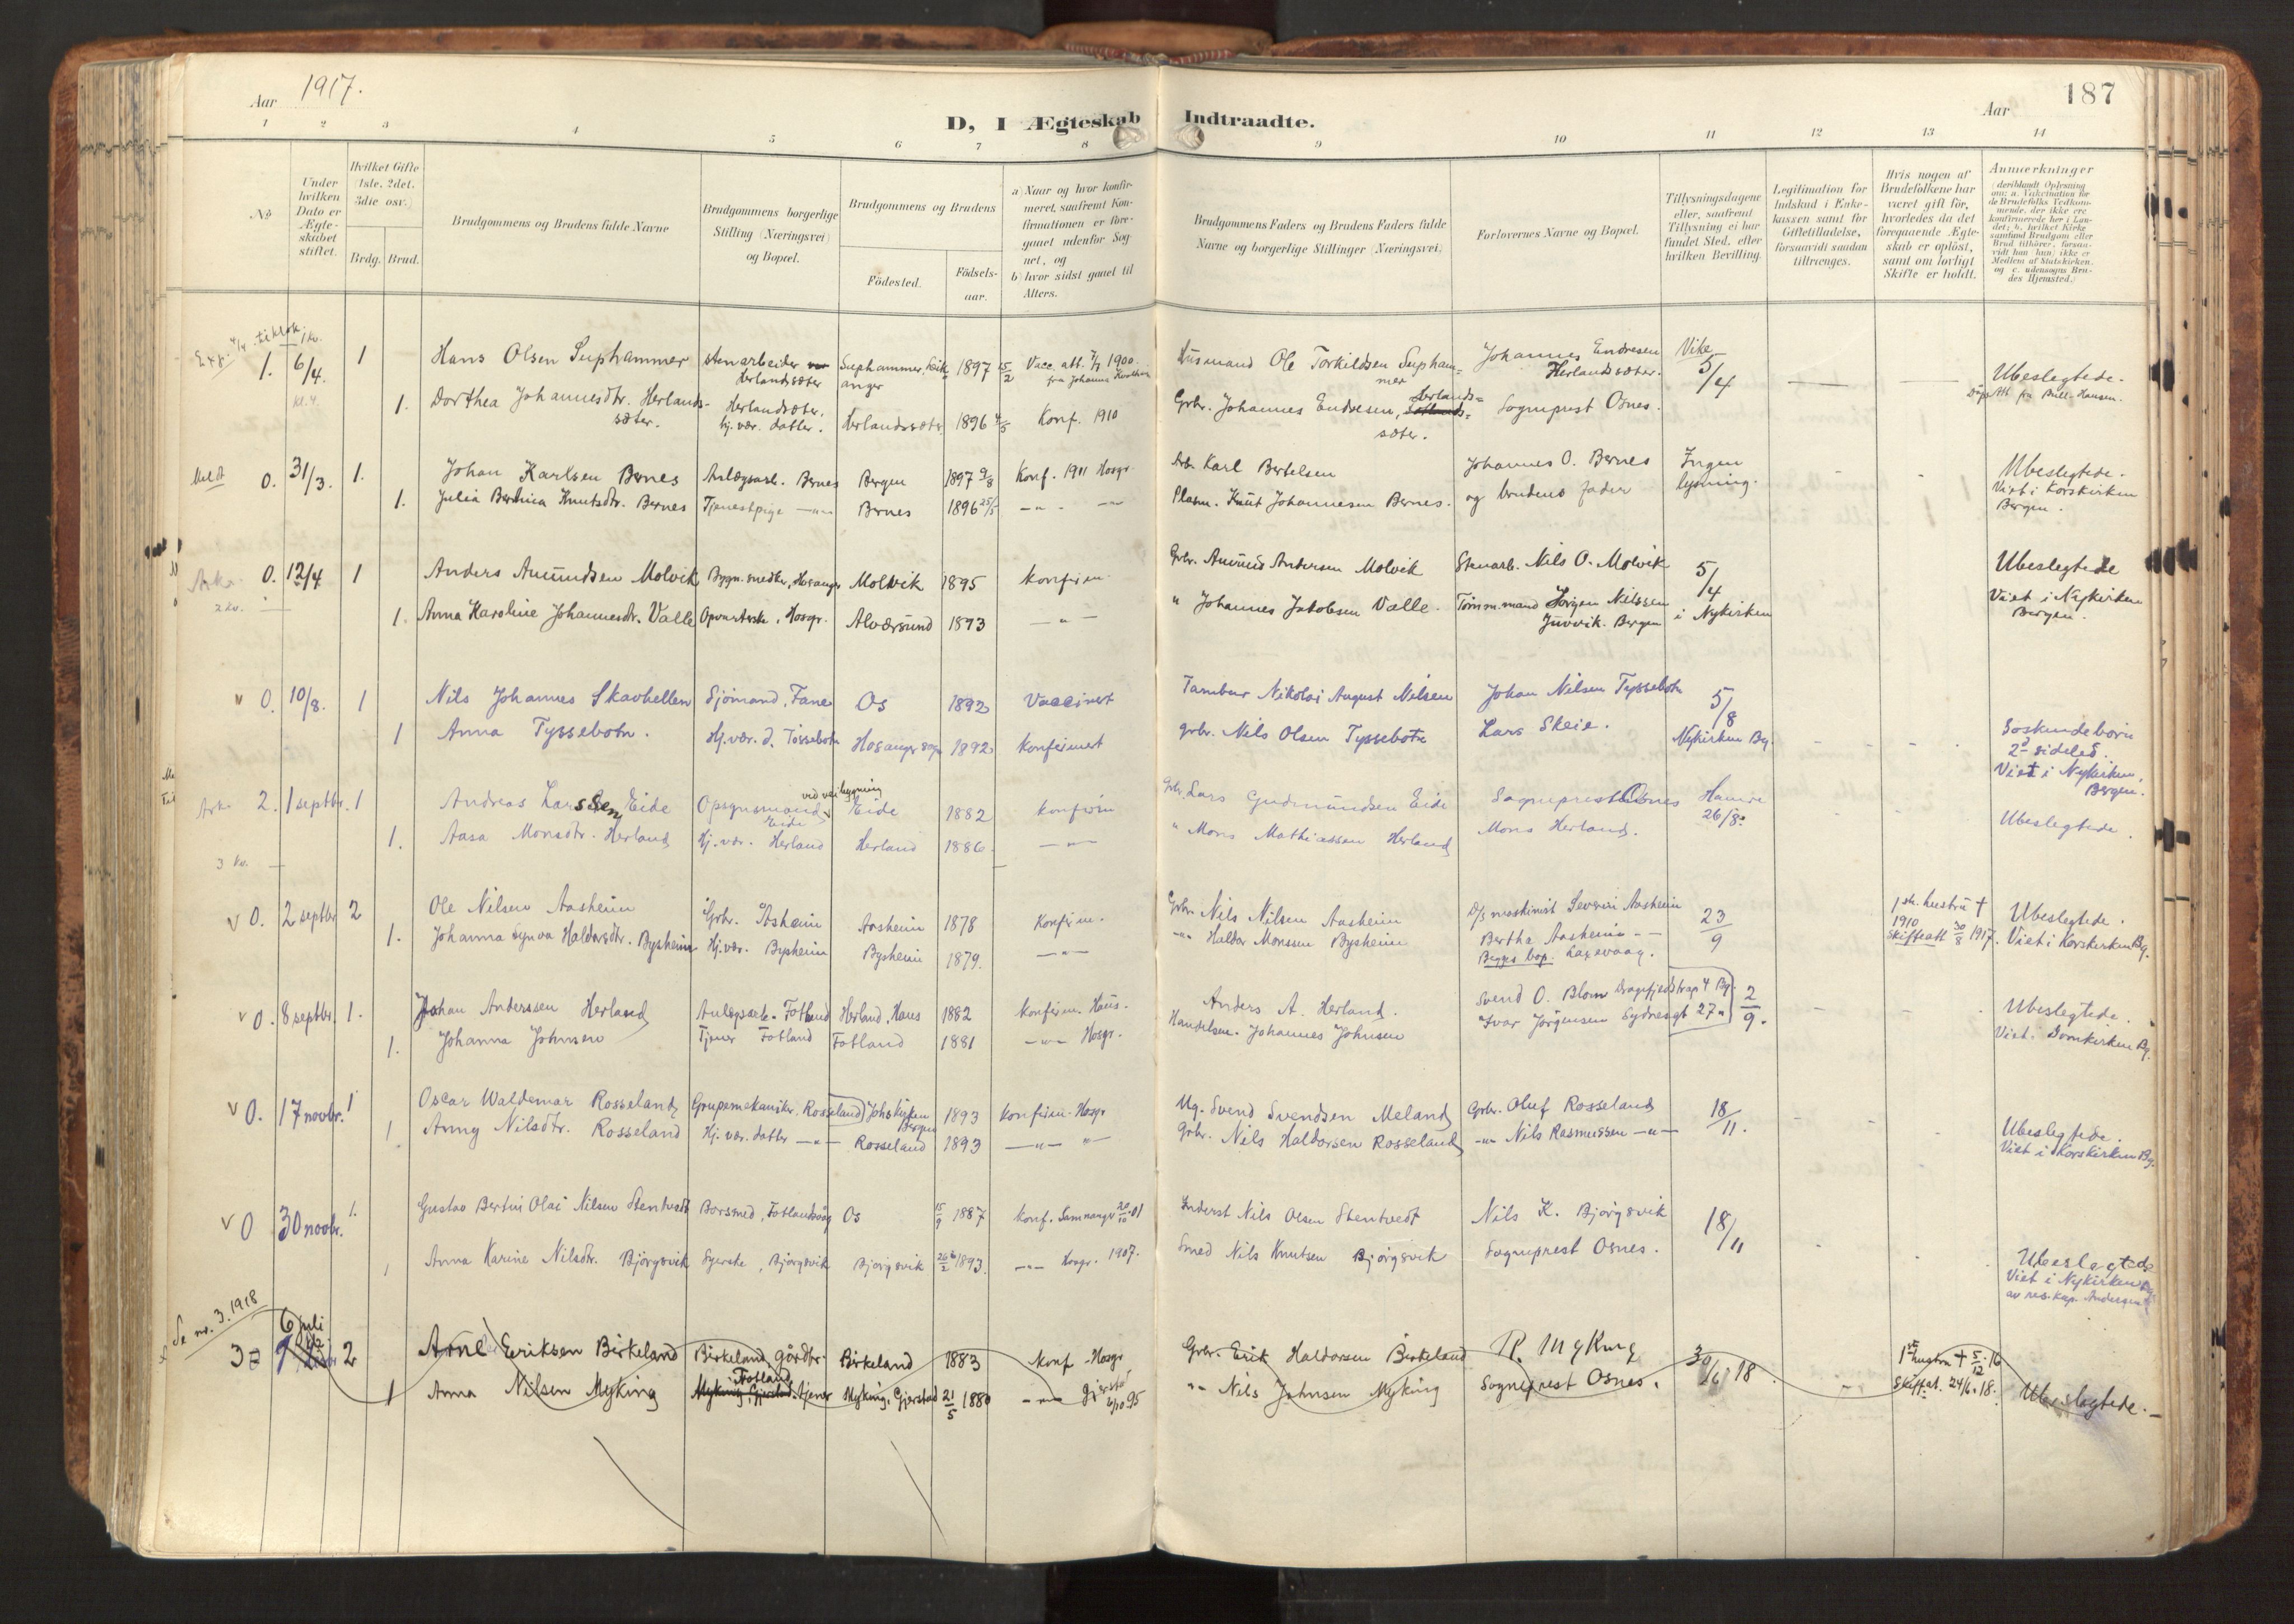 Aar 1917.
D, I Ægteskab Indtraadte.
Aar
187
1 2 3 4 5 6 7 8 9 10 11 12 13 14
No
Under hvilken Dato er Ægteskabet stiftet.
Hvilket Gifte (1ste, 2det, 3die osv.)
Brdg. Brud.
Brudgommens og Brudens fulde Navne
Brudgommens borgerlige Stilling (Næringsvei) og Bopæl.
Brudgommens og Brudens
Födested.
Födselsaar.
a) Naar og hvor konfirmeret, saafremt Konfirmationen er foregaaet udenfor Sognet, og
b) hvor sidst gaaet til Alters.
Brudgommens Faders og Brudens Faders fulde Navne og borgerlige Stillinger (Næringsvei)
Forlovernes Navne og Bopæl.
Tillysningsdagene eller, saafremt Tillysning ei har fundet Sted, efter hvilken Bevilling.
Legitimation for Indskud i Enkekassen samt for Giftetilladelse, forsaavidt saadan tiltrænges.
Hvis nogen af Brudefolkene har været gift för, hvorledes da det foregaaende Ægteskab er oplöst, samt om lovligt Skifte er holdt.
Anmærkninger (deriblandt Oplysning om: a. Vakcination for de Brudefolks Vedkommende, der ikke ere konfirmerede her i Landet; b. hvilket Kirkesamfund Brudgom eller Brud tilhörer, forsaavidt han (hun) ikke er Medlem af Statskirken, og c. udensogns Brudes Hjemsted.)
1. 6/4. 1 Hans Olsen Suphammer Stenarbeider Herlandsæter Suphammer, 1897 15/2 Vacc. att. 7/7 1900. Husmand Ole Torkildsen Suphammer Johannes Endresen Herlandsæter. Vike 5/4 Ubeslegtede.
kl. 4. 1. Dorthea Johannesdtr. Herlandsæter. Herlandsæter, hj. vær. datter. Herlandsæter 1896 4/5 Konf. 1910 Grbr. Johannes Endresen, Herlandsæter. Sogneprest Osnes.
0. 31/3. 1. Johan Karlsen Bernes Anlægsarb. Bernes Bergen 1897 9/8 Konf. 1911 Hosgr. Arb. Karl Bertelsen Johannes O. Bernes Ingen lysning. Ubeslegtede. Viet i Korskirken Bergen.
1. Julia Bertina Knutsdtr. Bernes Tjenestpige -"- Bernes 1896 25/5 -"- -"- Plasm. Knut Johannesen Bernes. og brudens fader
0. 12/4 1 Anders Amundsen Molvik Bygn. snedker, Hosanger Molvik 1895 Konfirm. Grbr. Amund Andersen Molvik Stenarb. Nils O. Molvik 5/4 i Nykirken Ubeslegtede Viet i Nykirken Bergen.
2 kv. 1. Anna Karoline Johannesdtr. Valle Hosgr. Alversund 1893 -"- " Johannes Jakobsen Valle. Tömm.mand Jörgen Nilssen Juvvik. Bergen
v 0. 10/8. 1 Nils Johannes Skavhellen Sjömand, Fane Os 1892 Vaccinert Tambur Nikolai August Nilsen Johan Nilsen Tyssebotn 5/8 Nykirken Bg.
1 Anna Tyssebotn. Hj. vær. d. Tössebotn Hosanger sogn 1892 Konfirmert grbr. Nils Olsen Tyssebotn Lars Skeie. Söskendebörn 2d sideled. Viet i Nykirken, Bergen.
2. 1 septbr. 1 Andreas Larssen Eide Opsynsmand ved veibygning Eide Eide 1882 Konfirm Grbr. Lars Gudmundsen Eide Sogneprest Osnes Hamre 26/8. Ubeslegtede.
3 kv. 1. Aasa Monsdtr. Herland Hj. vær. Herland Herland 1886. -"- " Mons Mathiassen Herland Mons Herland.
v 0. 2 septbr. 2 Ole Nilsen Aasheim Grbr. Asheim Aasheim 1878 Konfirm. Grbr. Nils Nilsen Aasheim D/s maskinist Severin Aasheim 23/9 1ste hustru † 1910 Skifteatt 30/8 1917. Ubeslegtede. Viet i Korskirken Bg.
1. Johanna Synva Haldorsdtr. Bysheim Hj. vær. Bysheim Bysheim 1879. -"- -"- Haldor Monssen Bysheim Bertha Aasheim Begges bop. Laxevaag.
v 0. 8 septbr. 1. Johan Anderssen Herland Anlegsarb. Fotland Herland, Haus 1882 Konfirm. Haus. Anders A. Herland. Svend O. Blom Dragefjeldstrap. 4 Bg. 2/9. Ubeslegtede. Viet i Domkirken Bg.
1. Johanna Johnsen Tjener Fotland Fotland 1881 -"- Hosgr. Handelsm. Johannes Johnsen Ivar Jørgensen Sydnesgt 27
v 0. 17 novbr. 1 Oscar Waldemar Rosseland Grupemekaniker. Rosseland Johs kirken Bergen 1893 Konfirm. Hosgr Ug. Svend Svendsen Meland Grbr. Oluf Rosseland 18/11. Ubeslegtede. Viet i Korskirken Bg.
1 Anny Nilsdtr. Rosseland Hj. vær. datter -"- Rosseland 1893 -"- " Grbr. Nils Haldorsen Rosseland -"- Nils Rasmussen -"-
v 0 30 novbr. 1. Gustav Bertin Olai Nilsen Stentvedt Borsmed, Fotlandsvåg Os 15/9 1887 Konf. Samnanger 20/10 01 Inderst Nils Olsen Stentvedt Nils K. Bjørgsvik 18/11
Anna Karine Nilsdtr. Bjørgsvik Syerske, Bjørgsvik Bjørgsvik 26/2 1893. -"- Hosgr. 1907. Smed Nils Knutsen Bjørgsvik Sogneprest Osnes. Ubeslegtede Viet i Nykirken Bg av res. kap. Andersen
Se nr. 3. 1918
3 6 juli 2 Arne Eeriksen Birkeland Birkeland, gårdbr. Birkeland 1883 Konf Hosgr Grbr. Erik Haldorsen Birkeland R. Myking 30/6 18. 1ste hustru † 5/12 16 Skifteat. 24/6. 18. Ubeslegtede.
1 Anna Nilsen Myking Fotland tjener Myking, Gjerstad 21/5 1880 -"- Gjerstd 6/10 95 -"- Nils Johnsen Myking Sogneprest Osnes.